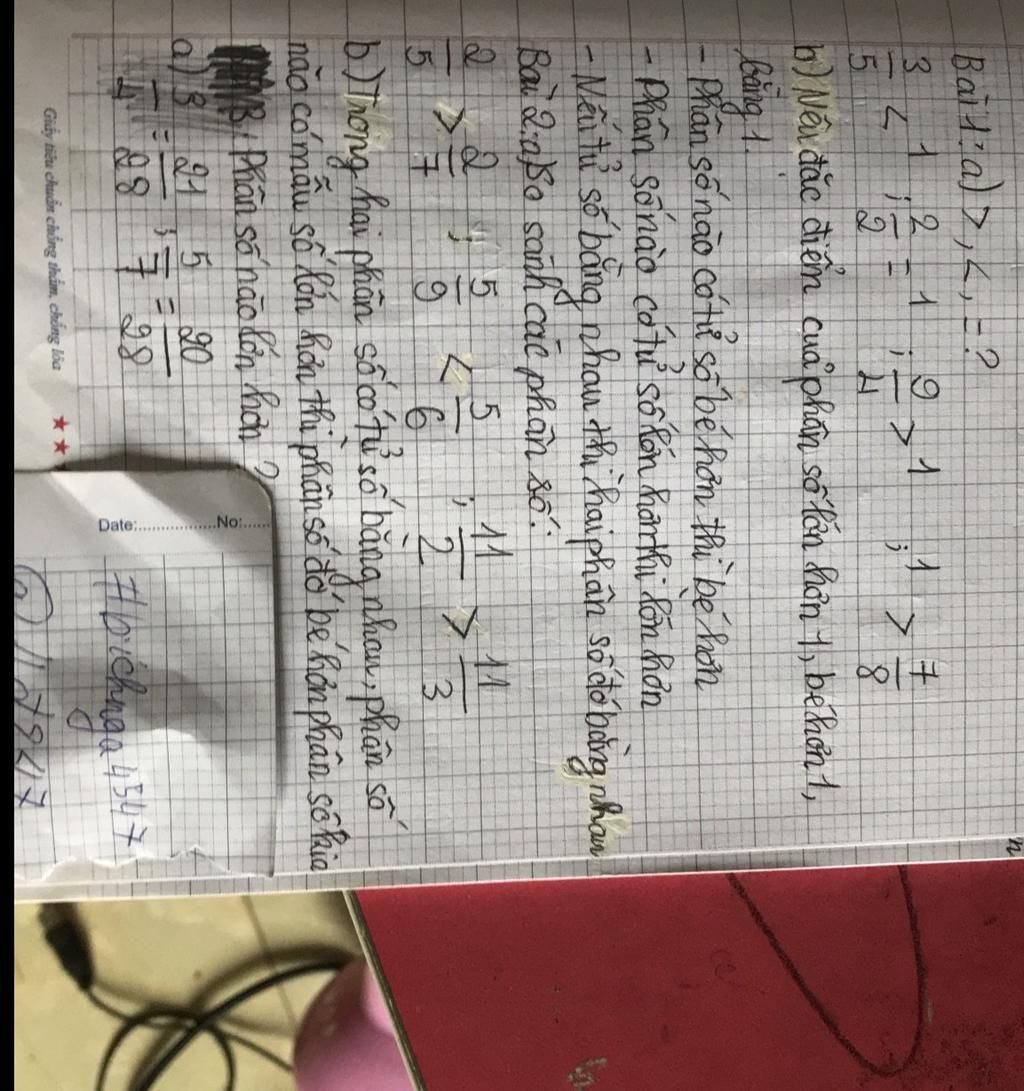 Bài 1: a) >, <, = ?
3/5 < 1 ; 2/2 = 1 ; 9/4 > 1 ; 1 > 7/8
b) Nêu đặc điển của phân số lớn hơn 1, bé hơn 1,
bằng 1.
- Phân số nào có tử số bé hơn thì bé hơn
- Phân số nào có tử số lớn hơn thì lớn hơn
- Nếu tử số bằng nhau thì hai phân số đó bằng nhau
Bài 2: a) So sánh các phân số:
2/5 > 2/7 ; 5/9 < 5/6 ; 11/2 > 11/3
b) Trong hai phân số có tử số bằng nhau, phân số
nào có mẫu số lớn hơn thì phân số đó bé hơn phân số kia
3, Phân số nào lớn hơn?
a) 3/4 = 21/28 ; 5/7 = 20/28
Giấy tiêu chuẩn chống thấm, chống lóa
Date: No: